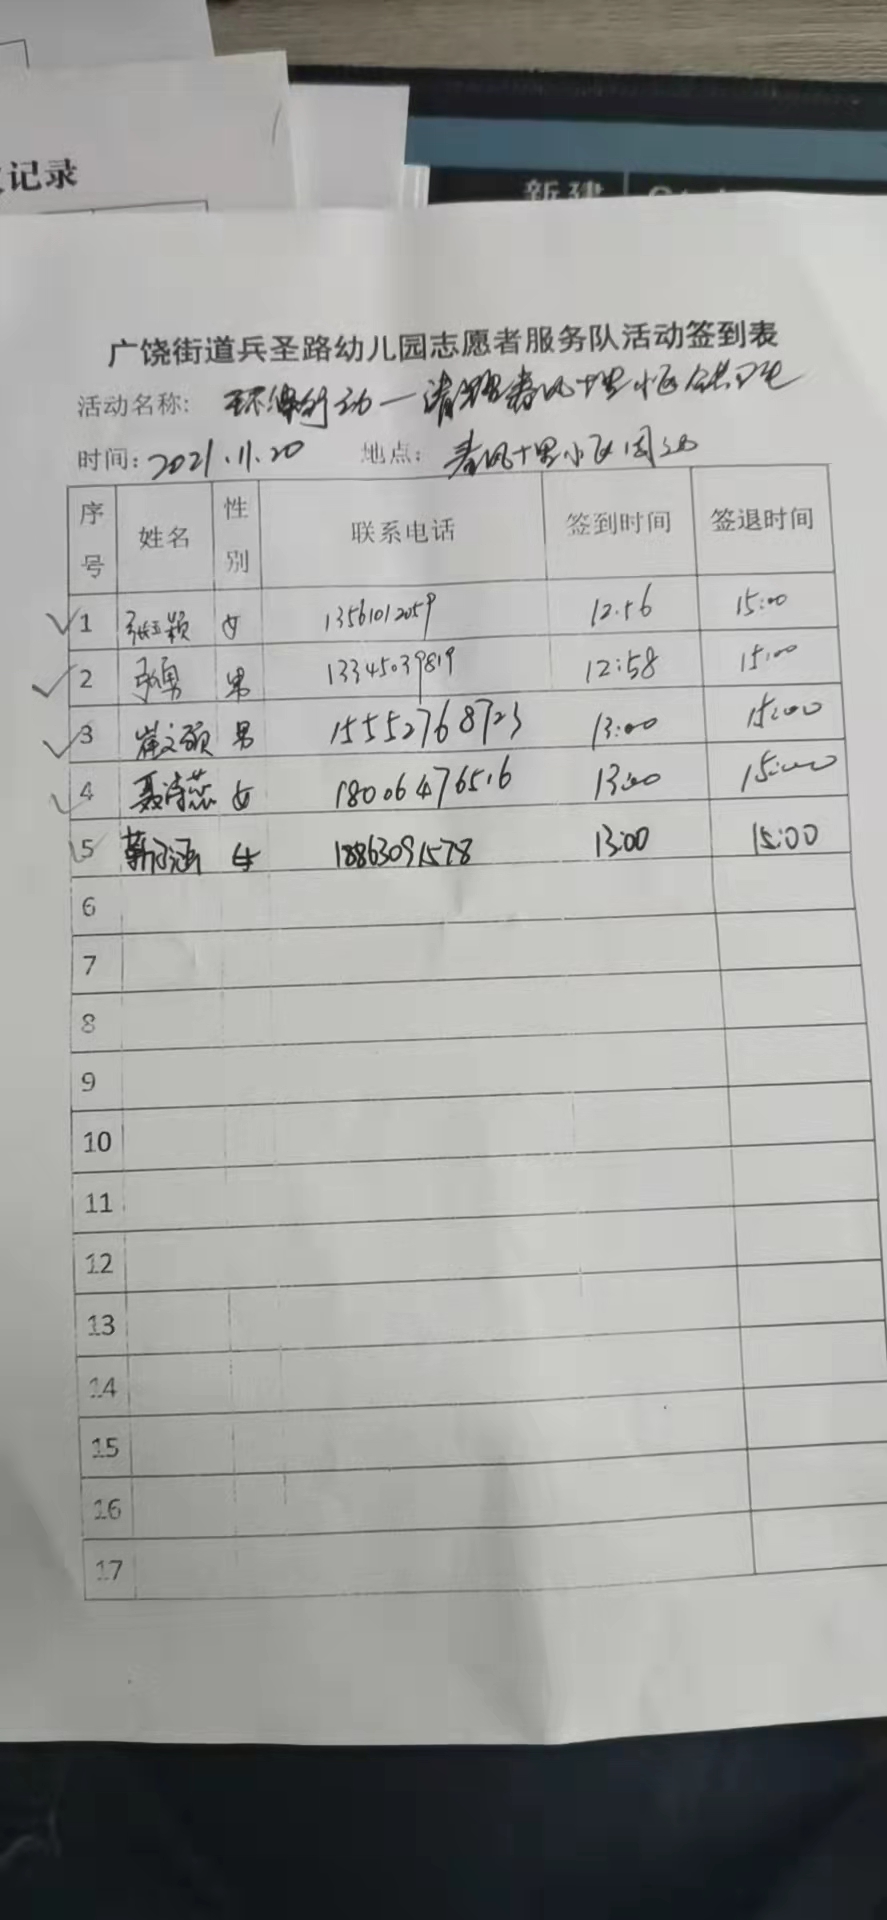 记录
新建
广饶街道兵圣路幼儿园志愿者服务队活动签到表
活动名称: 环保行动—清理春风十里小区公共卫生
时间: 2021.11.20 地点: 春风十里小区周边
序号 姓名 性别 联系电话 签到时间 签退时间
1 张玉颖 女 13561012059 12:56 15:00
2 男 13345039819 12:58 15:00
3 崔文硕 男 15552768723 13:00 15:00
4 聂诗蕊 女 18006476516 13:00 15:00
5 女 18863091578 13:00 15:00
6
7
8
9
10
11
12
13
14
15
16
17